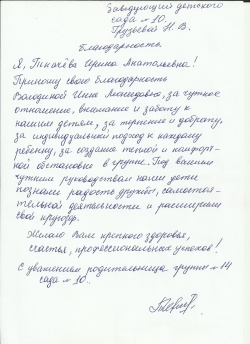 Заведующей детского
сада №10.
Грузьевой Н. В.
Благодарность.
Я, Ирина Анатольевна!
Приношу свою благодарность
Володиной Инне Леонидовне, за чуткое
отношение, внимание и заботу к
нашим детям, за терпение и доброту,
за индивидуальный подход к каждому
ребёнку, за создание теплой и комфорт-
ной обстановке в группе. Под вашим
чутким руководством наши дети
познали радость дружбы, самостоя-
тельной деятельности и расширили
свой кругозор.
Желаю Вам крепкого здоровья,
счастья, профессиональных успехов!
С уважением родительница группы №14
сада №10.